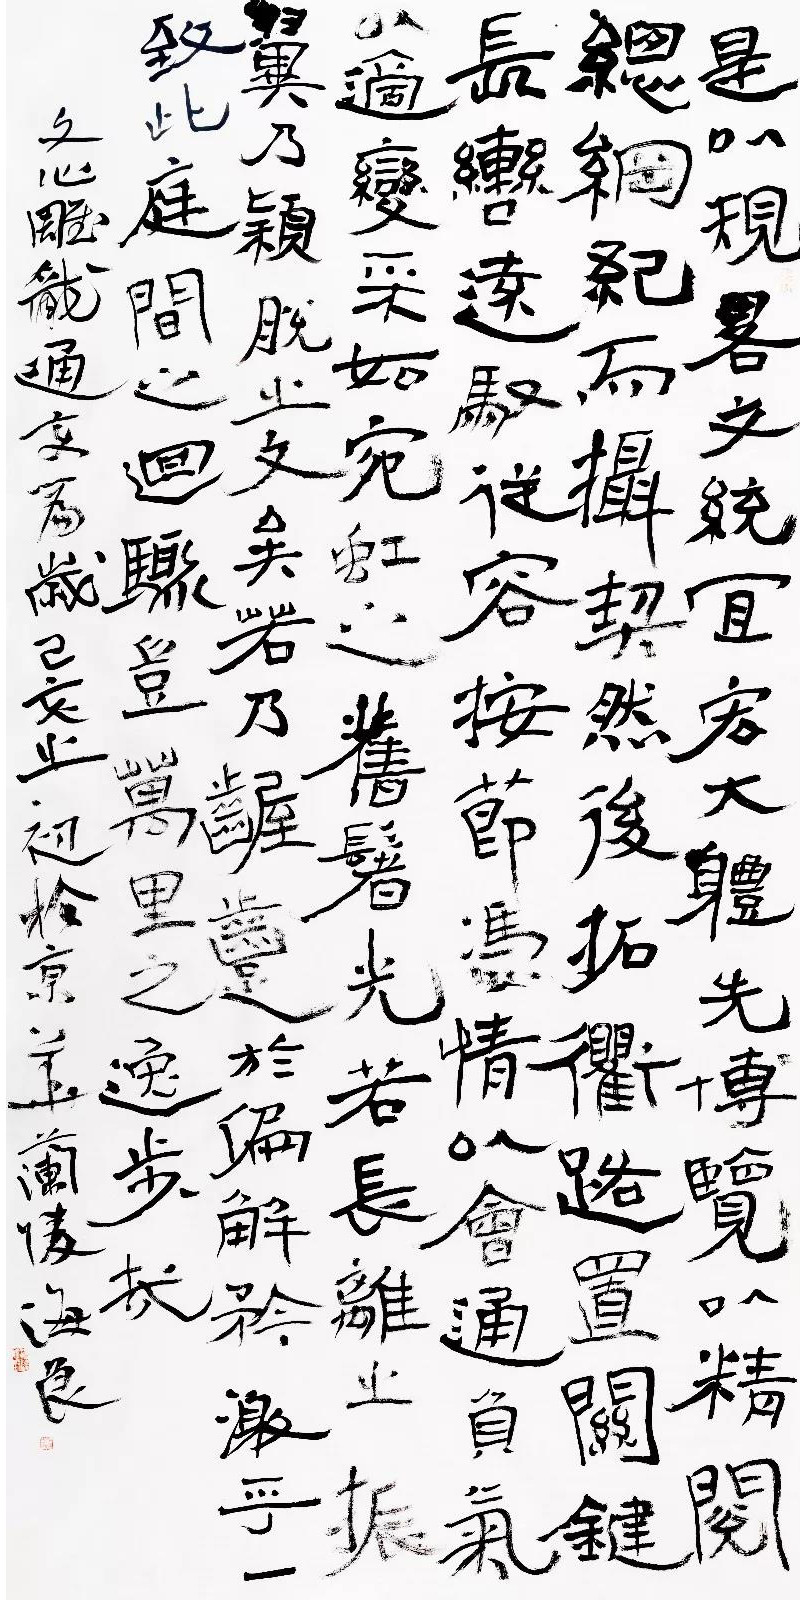 是以規畧文統宜宏大體先博覽以精閱
總綱紀而攝契然後拓衢路置關鍵
長轡遠馭從容按節憑情以會通負氣
以適變采如宛虹之舊鬐光若長離之振
翼乃穎脫之文矣若乃齷齪於偏解矜激乎一
致此庭間之迴驟豈萬里之逸步哉
文心雕龍通變篇歲己亥之初於京華蘭陵海良